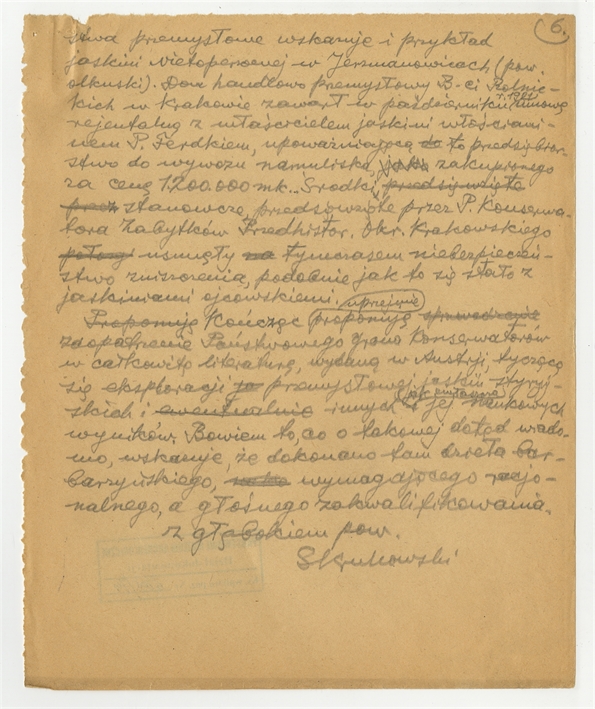 6.
stwa przemysłowe wskazuje i przykład
jaskini nietoperzowej w Jerzmanowicach (pow.
olkuski). Dom handlowo przemysłowy B-ci Rolnic-
kich w Krakowie zawarł w październiku umowę
rejentalną z właścicielem jaskini włościani-
nem P. Ferdkiem, upoważniającą do to przedsiębior-
stwo do wywozu namuliska, zakupionego
za cenę 1.200.000 mk. Środki, przedsięwzięte
przez stanowcze, przedsięwzięte przez P. Konserwa-
tora Zabytków Przedhistor. Okr. Krakowskiego
usunęły na tymczasem niebezpieczeń-
stwo zniszczenia, podobnie jak to się stało z
jaskiniami ojcowskiemi. uprzejmie
Proponuję Kończąc proponuję sprowadzenie
zaopatrzenie Państwowego Grona Konserwatorów
w całkowitą literaturę, wydaną w Austrji, tyczącą
się eksploracji przemysłowej jaskiń styryj-
skich i ewentualnie innych jej naukowych
wyników. Bowiem to, co o takowej dotąd wiado-
mo, wskazuje, że dokonano tam dzieła bar-
barzyńskiego, wymagającego racjo-
nalnego, a głośnego zakwalifikowania.
z głębokiem pow.
SKrukowski